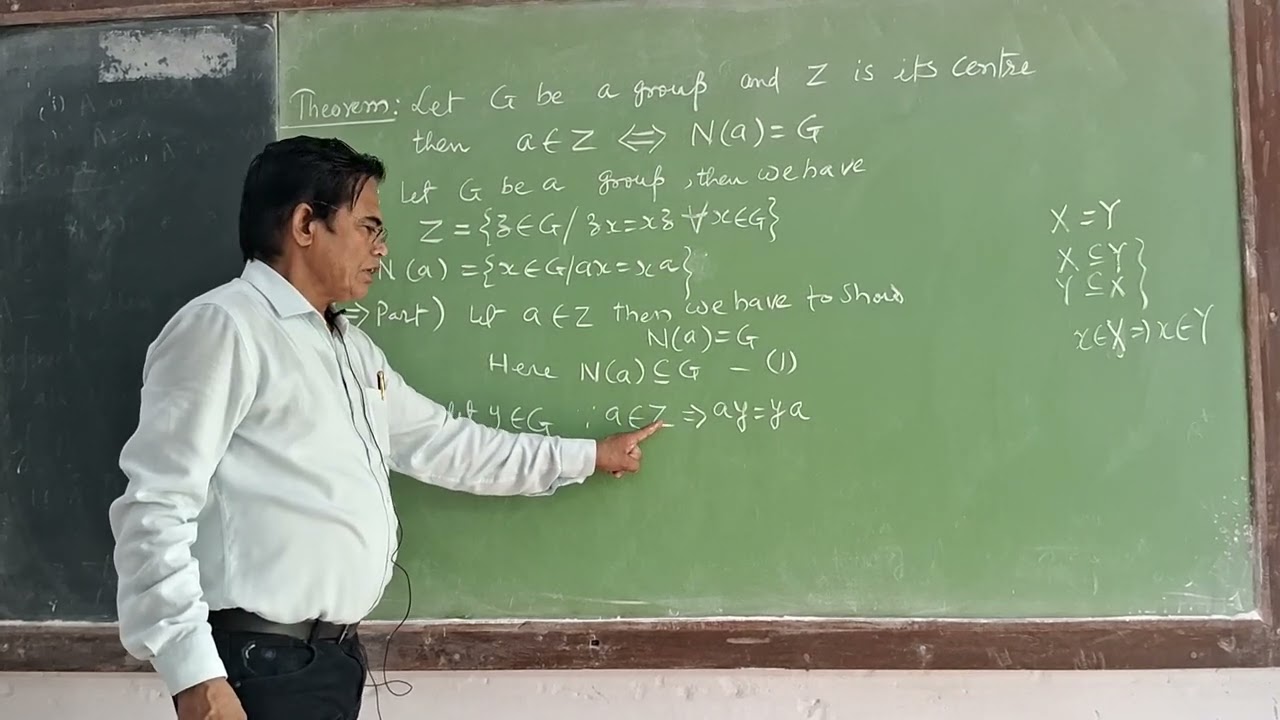 Theorem: Let G be a group and Z is its centre
then a ∈ Z ⇔ N(a) = G
Let G be a group, then we have
Z = {z ∈ G / zx = xz ∀ x ∈ G}
N(a) = {x ∈ G / ax = xa}
⇒ Part) Let a ∈ Z then we have to show
N(a) = G
Here N(a) ⊆ G – (1)
Let y ∈ G ∵ a ∈ Z ⇒ ay = ya
X = Y
X ⊆ Y
Y ⊆ X }
x ∈ X ⇒ x ∈ Y